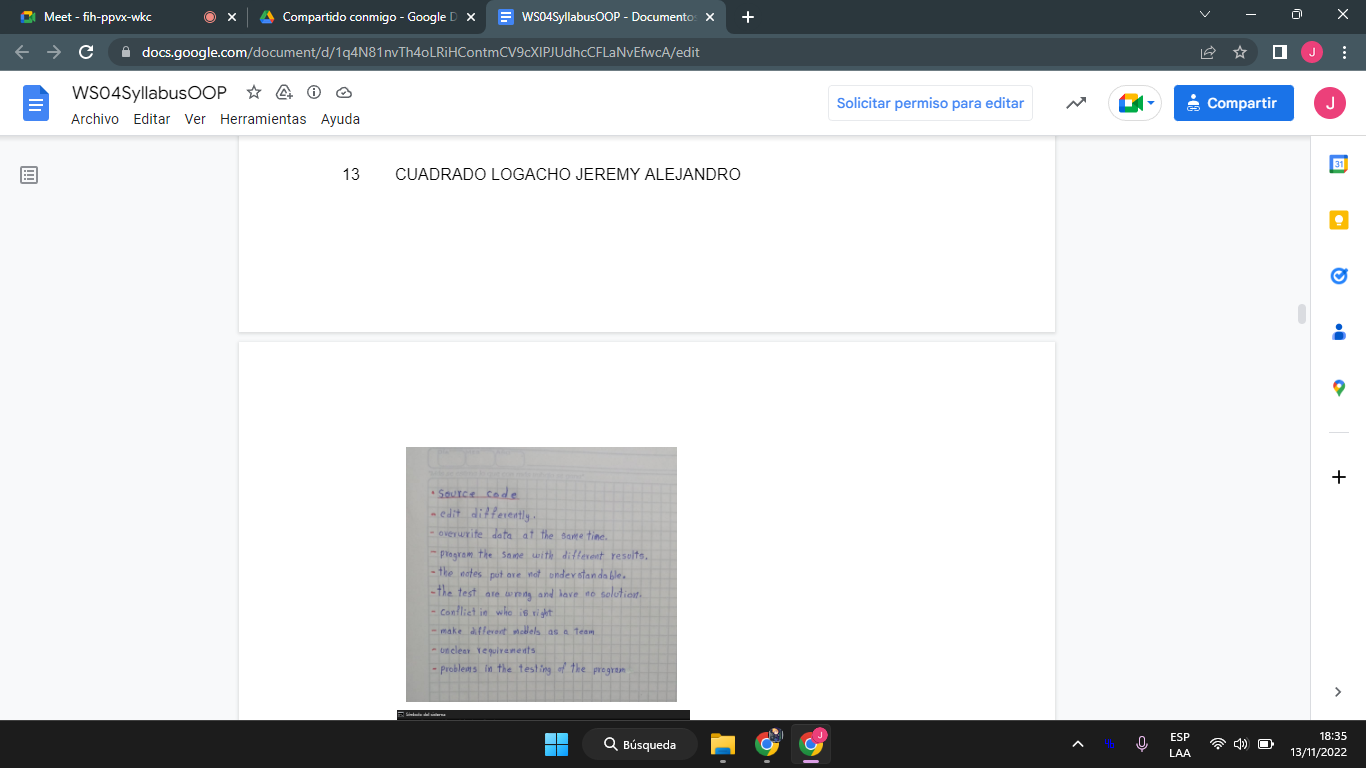 Meet - fih-ppvx-wkc
Compartido conmigo - Google D
WS04SyllabusOOP - Documentos
docs.google.com/document/d/1q4N81nvTh4oLRiHContmCV9cXIPJUdhcCFLaNvEfwcA/edit
J
WS04SyllabusOOP
Archivo Editar Ver Herramientas Ayuda
Solicitar permiso para editar
Compartir
J
31
13 CUADRADO LOGACHO JEREMY ALEJANDRO
• Source code
- edit differently.
- overwrite data at the same time.
- program the same with different results.
- the notes put are not understandable.
- the test are wrong and have no solution.
- conflict in who is right
- make different models as a Team
- unclear requirements
- problems in the testing of the program
Símbolo del sistema
Búsqueda
J
ESP
LAA
18:35
13/11/2022